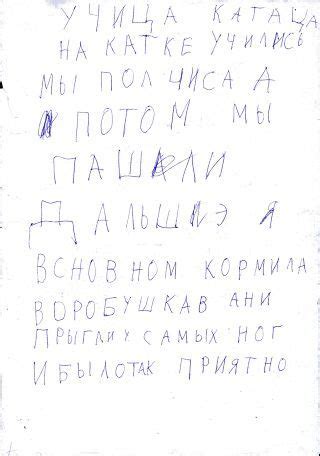 УЧИЦА КАТАЦА
НА КАТКЕ УЧИЛИСЬ
МЫ ПОЛ ЧИСА А
ПОТОМ МЫ
ПАШЛИ
ДАЛЬШЭ Я
ВСНОВНОМ КОРМИЛА
ВОРОБУШКАВ АНИ
ПРЫГЛИ У САМЫХ НОГ
И БЫЛОТАК ПРИЯТНО